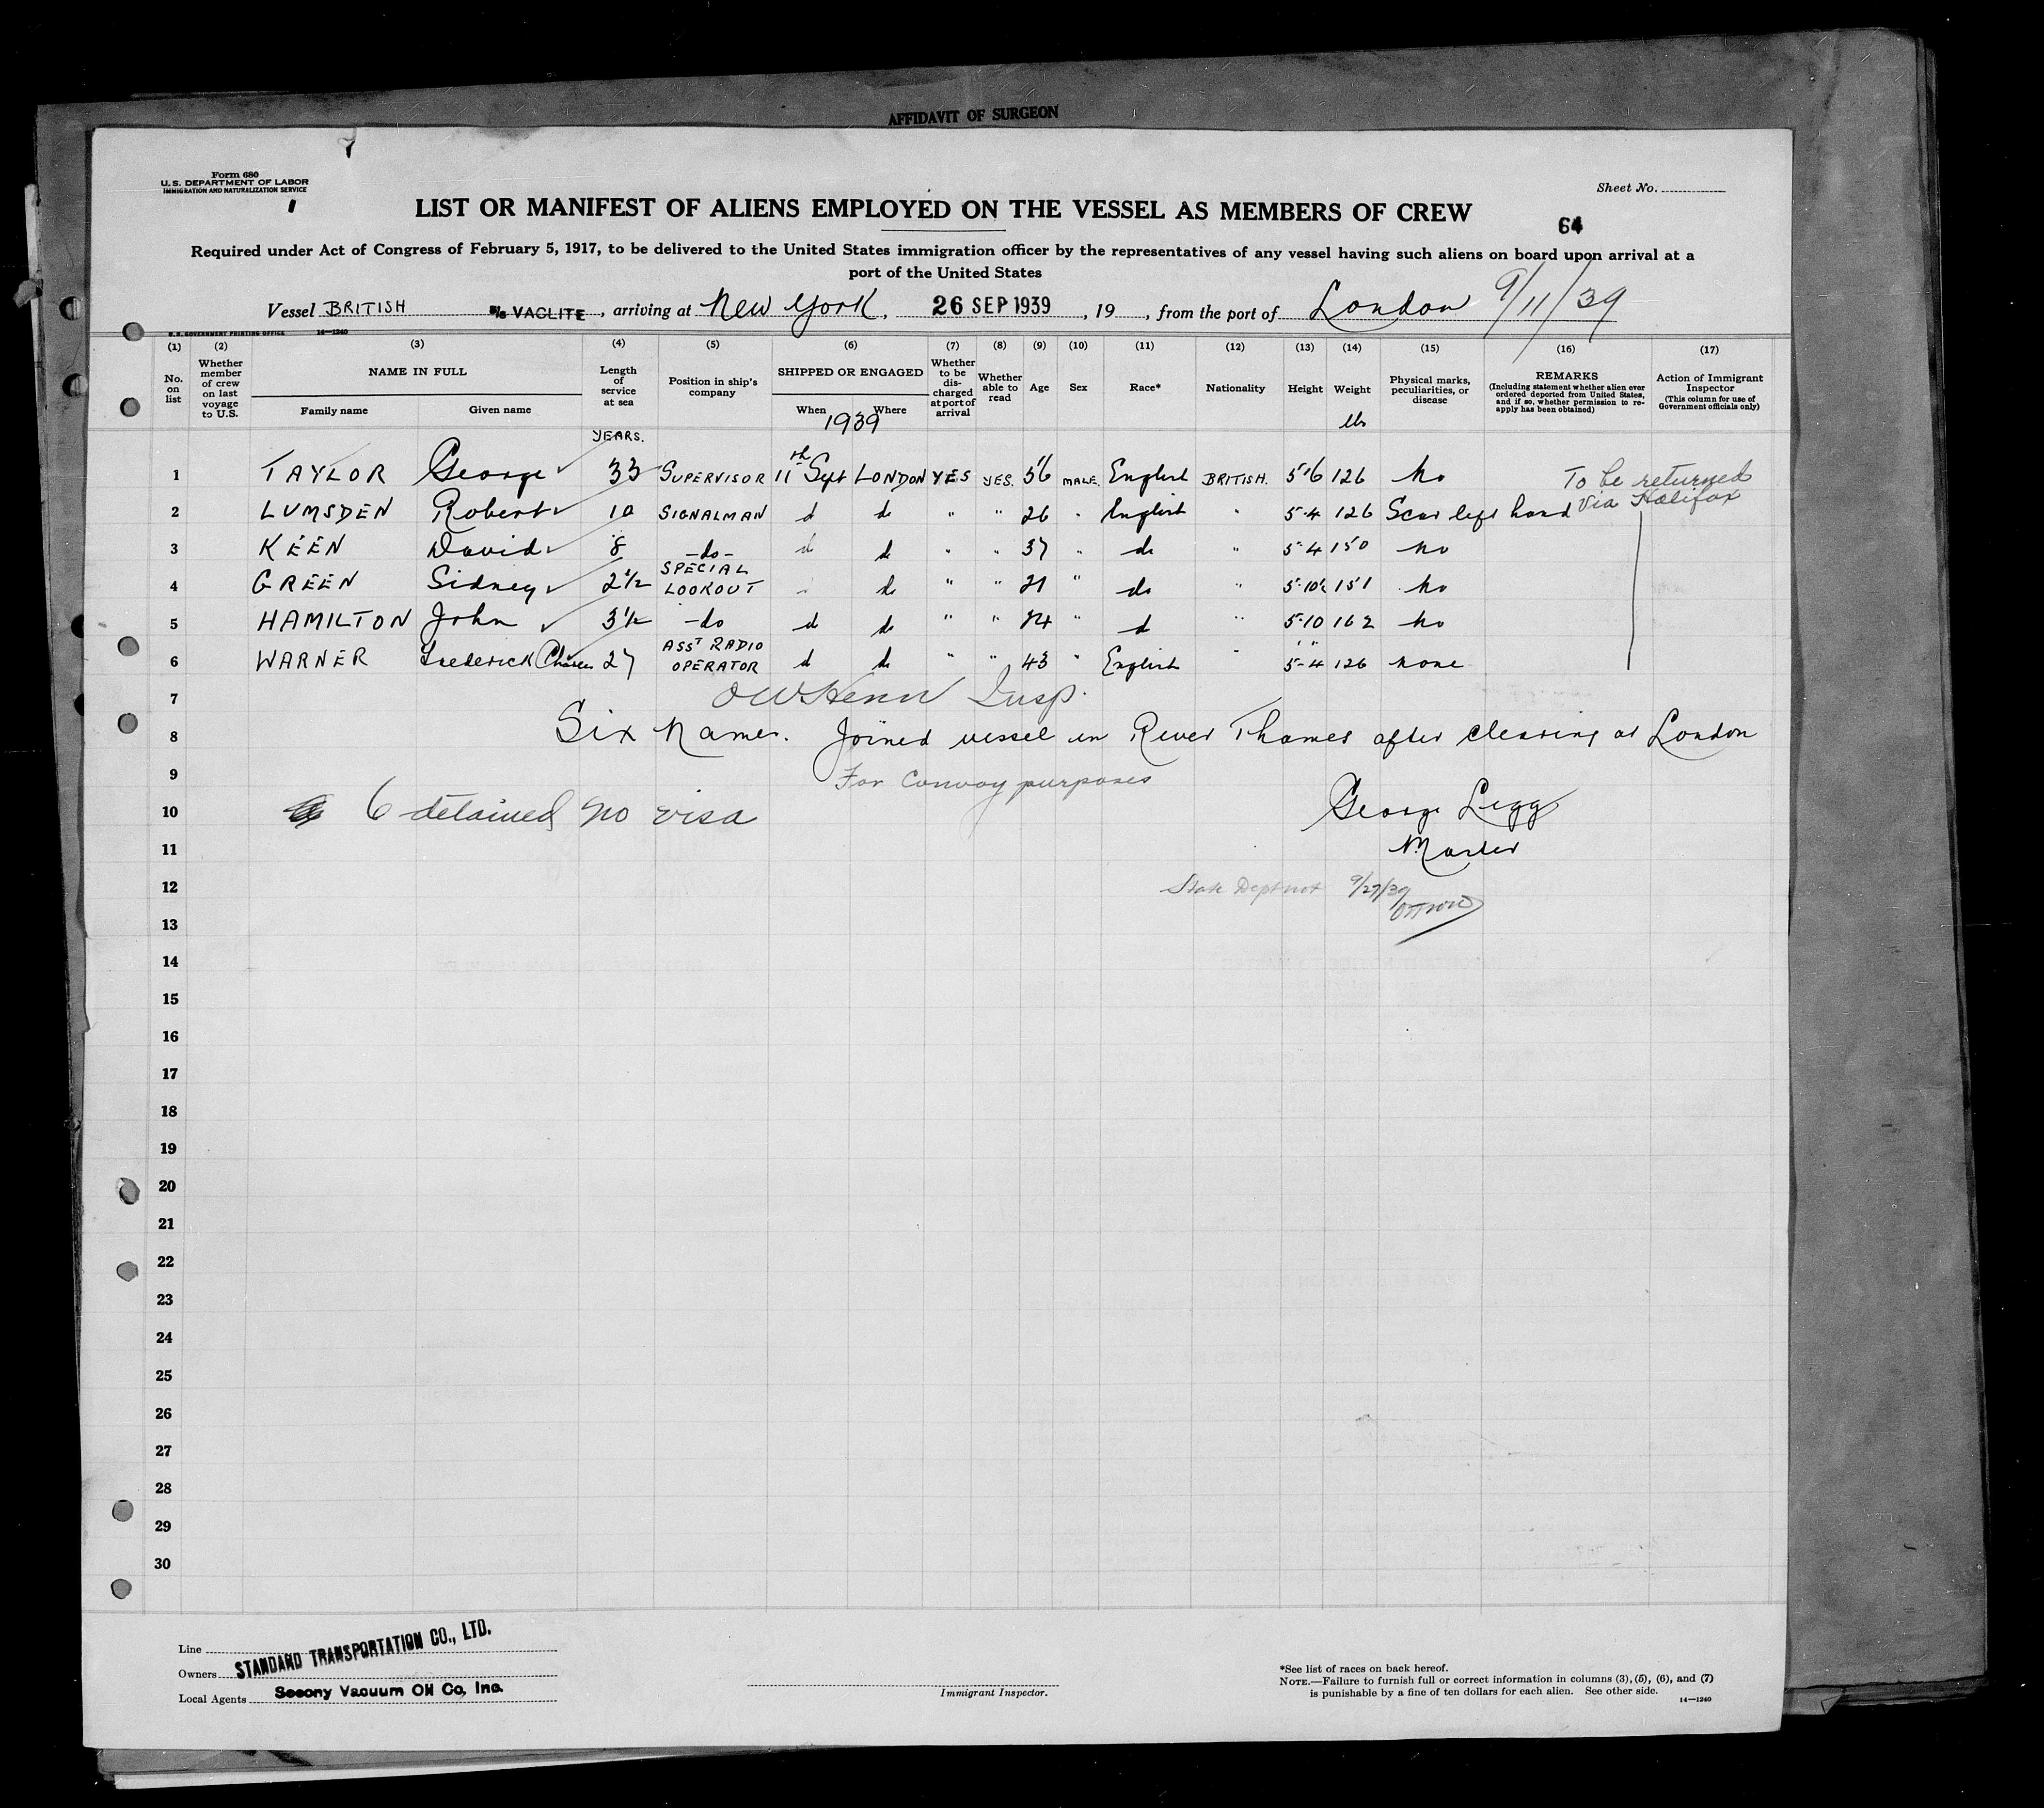 AFFIDAVIT OF SURGEON
Form 680
U. S. DEPARTMENT OF LABOR
IMMIGRATION AND NATURALIZATION SERVICE
Sheet No.
LIST OR MANIFEST OF ALIENS EMPLOYED ON THE VESSEL AS MEMBERS OF CREW
64
Required under Act of Congress of February 5, 1917, to be delivered to the United States immigration officer by the representatives of any vessel having such aliens on board upon arrival at a
port of the United States
Vessel BRITISH S/S VACLITE, arriving at New York, 26 SEP 1939, 19 , from the port of London 9/11/39
U.S. GOVERNMENT PRINTING OFFICE 14—1240
(1) (2) (3) (4) (5) (6) (7) (8) (9) (10) (11) (12) (13) (14) (15) (16) (17)
No. on list
Whether member of crew on last voyage to U.S.
NAME IN FULL
Family name Given name
Length of service at sea
Position in ship's company
SHIPPED OR ENGAGED
When Where
1939
Whether to be discharged at port of arrival
Whether able to read
Age
Sex
Race*
Nationality
Height
Weight
lbs
Physical marks, peculiarities, or disease
REMARKS
(Including statement whether alien ever ordered deported from United States, and if so, whether permission to reapply has been obtained)
Action of Immigrant Inspector
(This column for use of Government officials only)
YEARS.
1 TAYLOR George 33 SUPERVISOR 11th Sept LONDON YES YES. 56 MALE. English BRITISH. 5-6 126 No To be returned
2 LUMSDEN Robert 10 SIGNALMAN d do " " 26 " English " 5-4 126 Scar left hand via Halifax
3 KEEN David 8 -do- do do " " 37 " do " 5-4 150 no
4 GREEN Sidney 2½ SPECIAL LOOKOUT do " " 21 " do " 5-10½ 151 no
5 HAMILTON John 3½ -do d do " " 24 " d " 5-10 162 no
6 WARNER Frederick Charles 27 ASST RADIO OPERATOR d do " " 43 " English " 5-4 126 none
7 Insp.
8 Six Names. Joined vessel in River Thames after clearing at London
9 For Convoy purposes
10 6 detained no visa George Legg
11 Master
12 State Dept not 9/27/39
13
14
15
16
17
18
19
20
21
22
23
24
25
26
27
28
29
30
Line
Owners STANDARD TRANSPORTATION CO., LTD.
Local Agents Socony Vacuum Oil Co, Inc.
Immigrant Inspector.
*See list of races on back hereof.
NOTE.—Failure to furnish full or correct information in columns (3), (5), (6), and (7)
is punishable by a fine of ten dollars for each alien. See other side.
14—1240